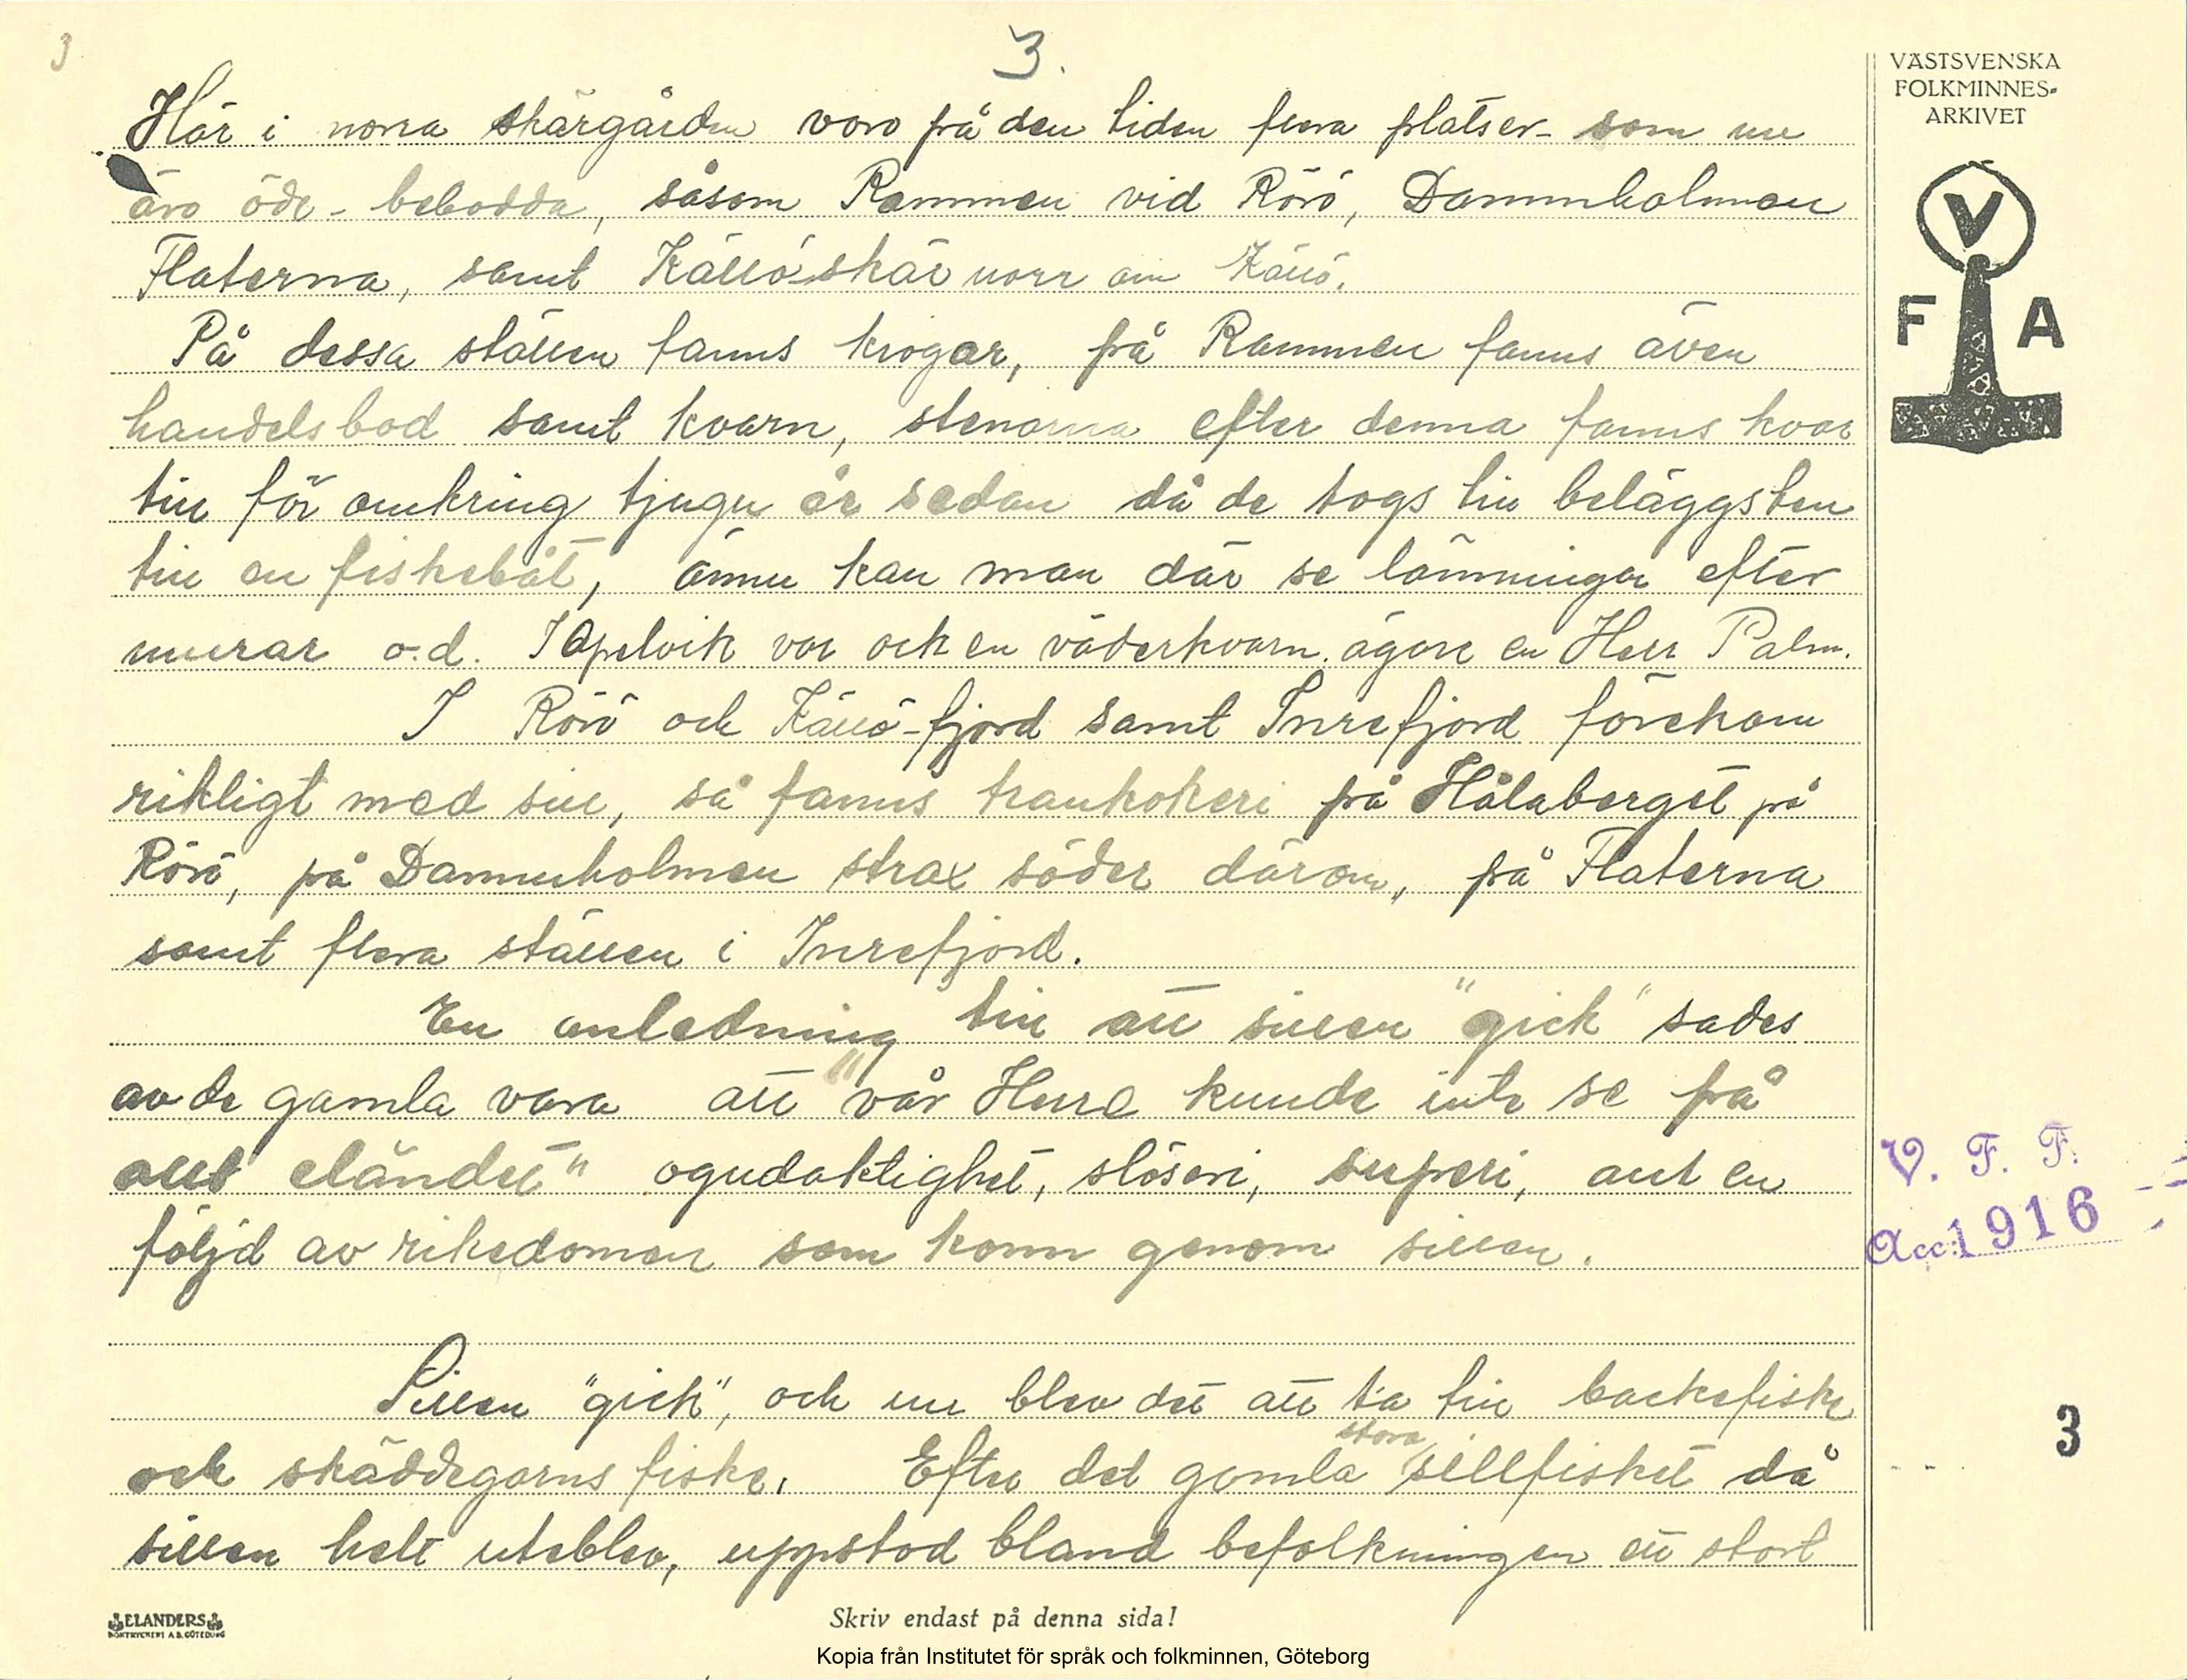 3
3.
VÄSTSVENSKA
FOLKMINNES-
ARKIVET
V
F A
Här i norra skärgården voro på den tiden flera platser - som nu
äro öde - bebodda, såsom Rammen vid Rörö, Dammholmen
Flaterna, samt Källö-skär norr om Källö.
På dessa ställen fanns krogar, på Rammen fanns även
handelsbod samt kvarn, stenarna efter denna fanns kvar
till för omkring tjugu år sedan då de togs till beläggsten
till en fiskebåt, ännu kan man där se lämningar efter
murar o.d. I Apelvik var ock en väderkvarn, ägare en Herr Palm.
I Rörö och Källö-fjord samt Inrefjord förekom
rikligt med sill, så fanns trankokeri på Hålaberget på
Rörö, på Dammholmen strax söder därom, på Flaterna
samt flera ställen i Inrefjord.
En anledning till att sillen "gick" sades
av de gamla vara att "vår Herre kunde inte se på
allt eländet" ogudaktighet, slöseri, superi, allt en
följd av rikedomen som kom genom sillen.
Sillen "gick", och nu blev det att ta till backefiske
och skäddegarns fiske. Efter det gamla stora sillfisket då
sillen helt uteblev, uppstod bland befolkningen ett stort
V. F. F.
Acc: 1916
3
ELANDERS
BOKTRYCKERI A.B. GÖTEBORG
Skriv endast på denna sida!
Kopia från Institutet för språk och folkminnen, Göteborg